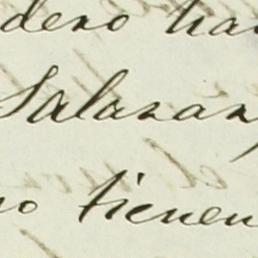 dero han
Salazar,
no tienen